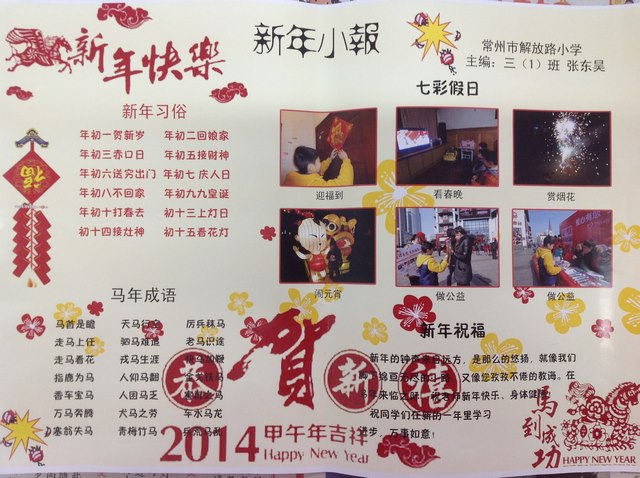 新年快樂
新年小報
常州市解放路小学
主编：三（1）班 张东昊
新年习俗
年初一贺新岁 年初二回娘家
年初三赤口日 年初五接财神
年初六送穷出门 年初七 庆人日
年初八不回家 年初九九皇诞
年初十打春去 初十三上灯日
初十四接灶神 初十五看花灯
福
七彩假日
迎福到 看春晚 赏烟花
闹元宵 做公益 做公益
马年成语
马首是瞻 天马行空 厉兵秣马
走马上任 驷马难追 老马识途
走马看花 戎马生涯
指鹿为马 人仰马翻
香车宝马 人困马乏
万马奔腾 犬马之劳 车水马龙
塞翁失马 青梅竹马 兵荒马乱
賀
新
2014 甲午年吉祥
Happy New Year
新年祝福
新年的钟声来自远方，是那么的悠扬，就像我们
又像您孜孜不倦的教诲。在
老师新年快乐、身体健康
祝同学们在新的一年里学习
进步，万事如意！
馬到成功
HAPPY NEW YEAR